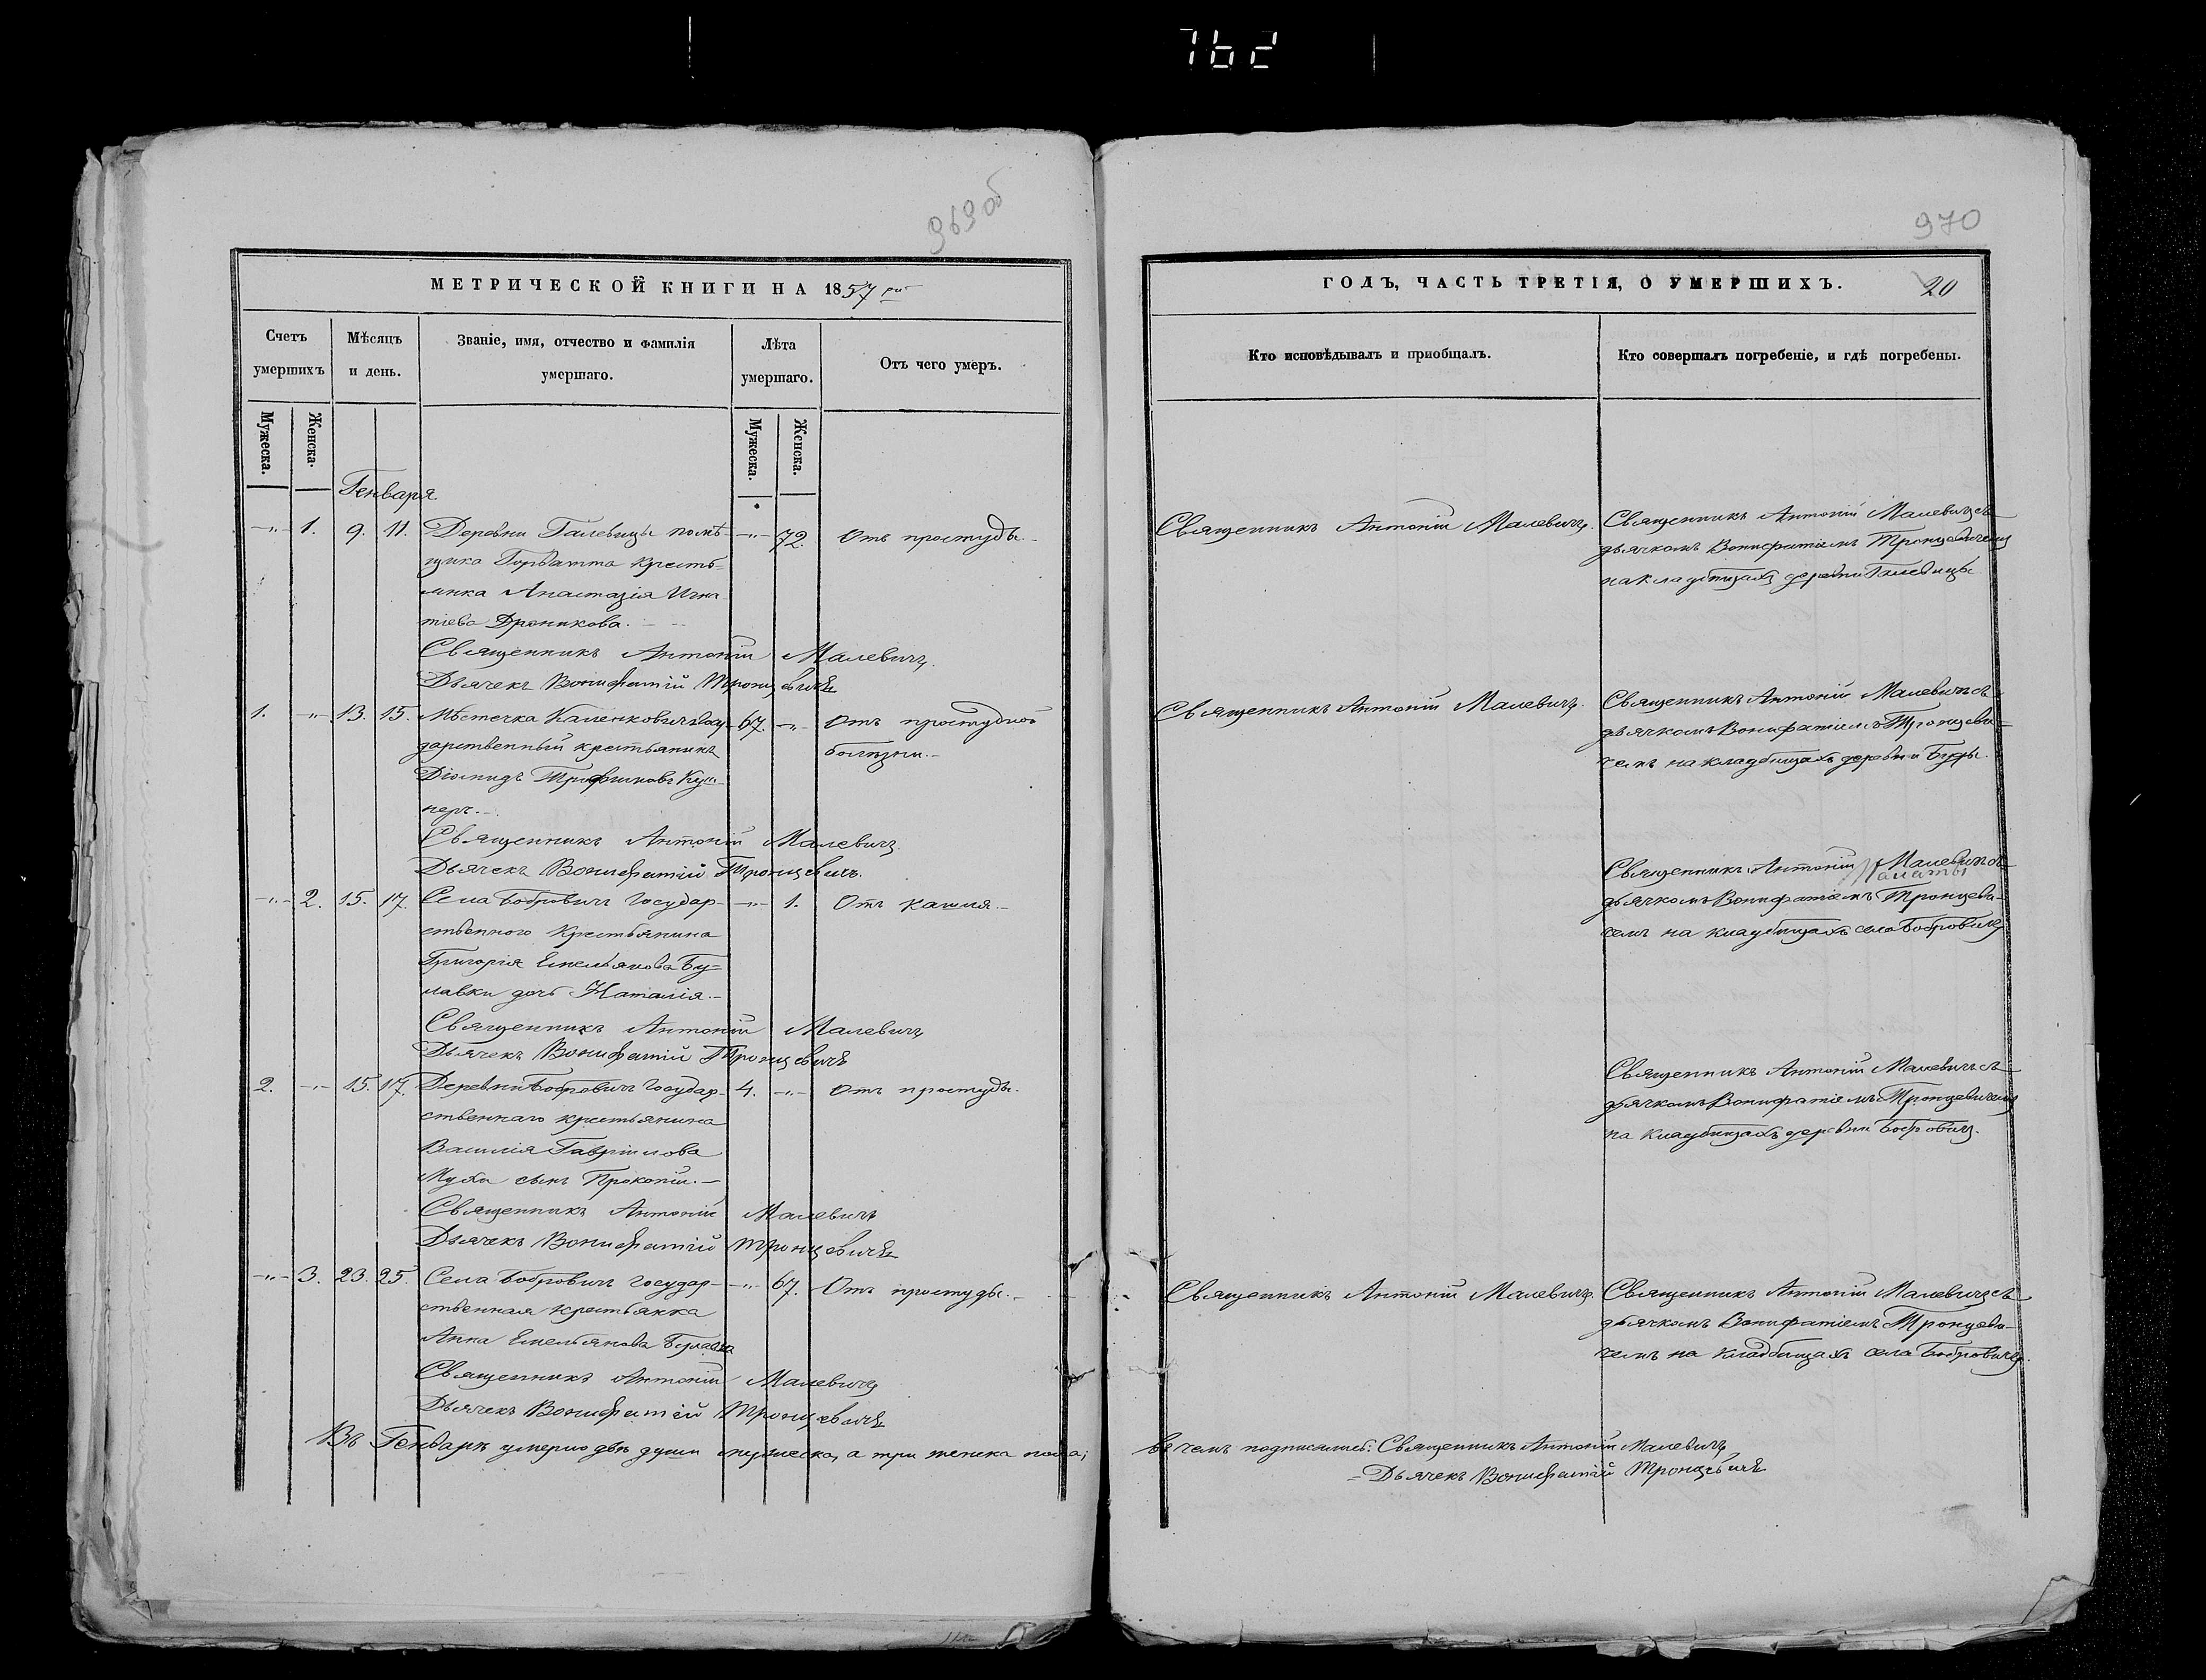 762
969 об
МЕТРИЧЕСКОЙ КНИГИ НА 1857 го
Счетъ умершихъ
Мѣсяцъ и день.
Званіе, имя, отчество и фамилія умершаго.
Лѣта умершаго.
Отъ чего умеръ.
Мужеска.
Женска.
Мужеска.
Женска.
Генваря
-"- 1. 9. 11. Деревни Галевицы помѣ- -"- 72. Отъ простуды.
щика Горватта кресть-
янка Анастазія Игна-
тіева Дроникова.
Священникъ Антоній Малевичъ
Дьячекъ Вонифатій Тронцевичъ
1. -"- 13. 15. Мѣстечка Каленковичъ Госу- 67. -"- Отъ простудной
дарственный крестьянинъ болѣзни.
Діомидъ Трофимовъ Куш-
неръ.
Священникъ Антоній Малевичъ
Дьячекъ Вонифатій Тронцевичъ.
-"- 2. 15. 17. Села Бобровичъ Государ- -"- 1. Отъ кашля.
ственного крестьянина
Григорія Емельянова Бу-
лавки дочь Наталія.
Священникъ Антоній Малевичъ
Дьячекъ Вонифатій Тронцевичъ
2. -"- 15. 17. Деревни Бобровичъ Государ- 4. -"- Отъ простуды.
ственнаго крестьянина
Василія Гавріилова
Муха сынъ Прокопій.
Священникъ Антоній Малевичъ
Дьячекъ Вонифатій Тронцевичъ
-"- 3. 23. 25. Села Бобровичъ государ- -"- 67. Отъ простуды.
ственная крестьянка
Анна Емельянова Булавка
Священникъ Антоній Малевичъ
Дьячекъ Вонифатій Тронцевичъ
Въ Генварѣ умерло двѣ души мужеска, а три женска пола;
970
ГОДЪ, ЧАСТЬ ТРЕТІЯ, О УМЕРШИХЪ.
20
Кто исповѣдывалъ и приобщалъ.
Кто совершалъ погребеніе, и гдѣ погребены.
Священникъ Антоній Малевичъ. Священникъ Антоній Малевичъ съ
дьячкомъ Вонифатіемъ Тронцевичемъ
на кладбищахъ деревни Галевицы
Священникъ Антоній Малевичъ. Священникъ Антоній Малевичъ съ
дьячкомъ Вонифатіемъ Тронцеви-
чемъ на кладбищахъ деревни Буды.
Священникъ Антоній Малевичъ съ
дьячкомъ Вонифатіемъ Тронцеви-
чемъ на кладбищахъ села Бобровичъ
Священникъ Антоній Малевичъ съ
дьячкомъ Вонифатіемъ Тронцевичемъ
на кладбищахъ деревни Бобровичъ.
Священникъ Антоній Малевичъ. Священникъ Антоній Малевичъ съ
дьячкомъ Вонифатіемъ Тронцеви-
чемъ на кладбищахъ села Бобровичъ.
въ чемъ подписались: Священникъ Антоній Малевичъ
Дьячекъ Вонифатій Тронцевичъ